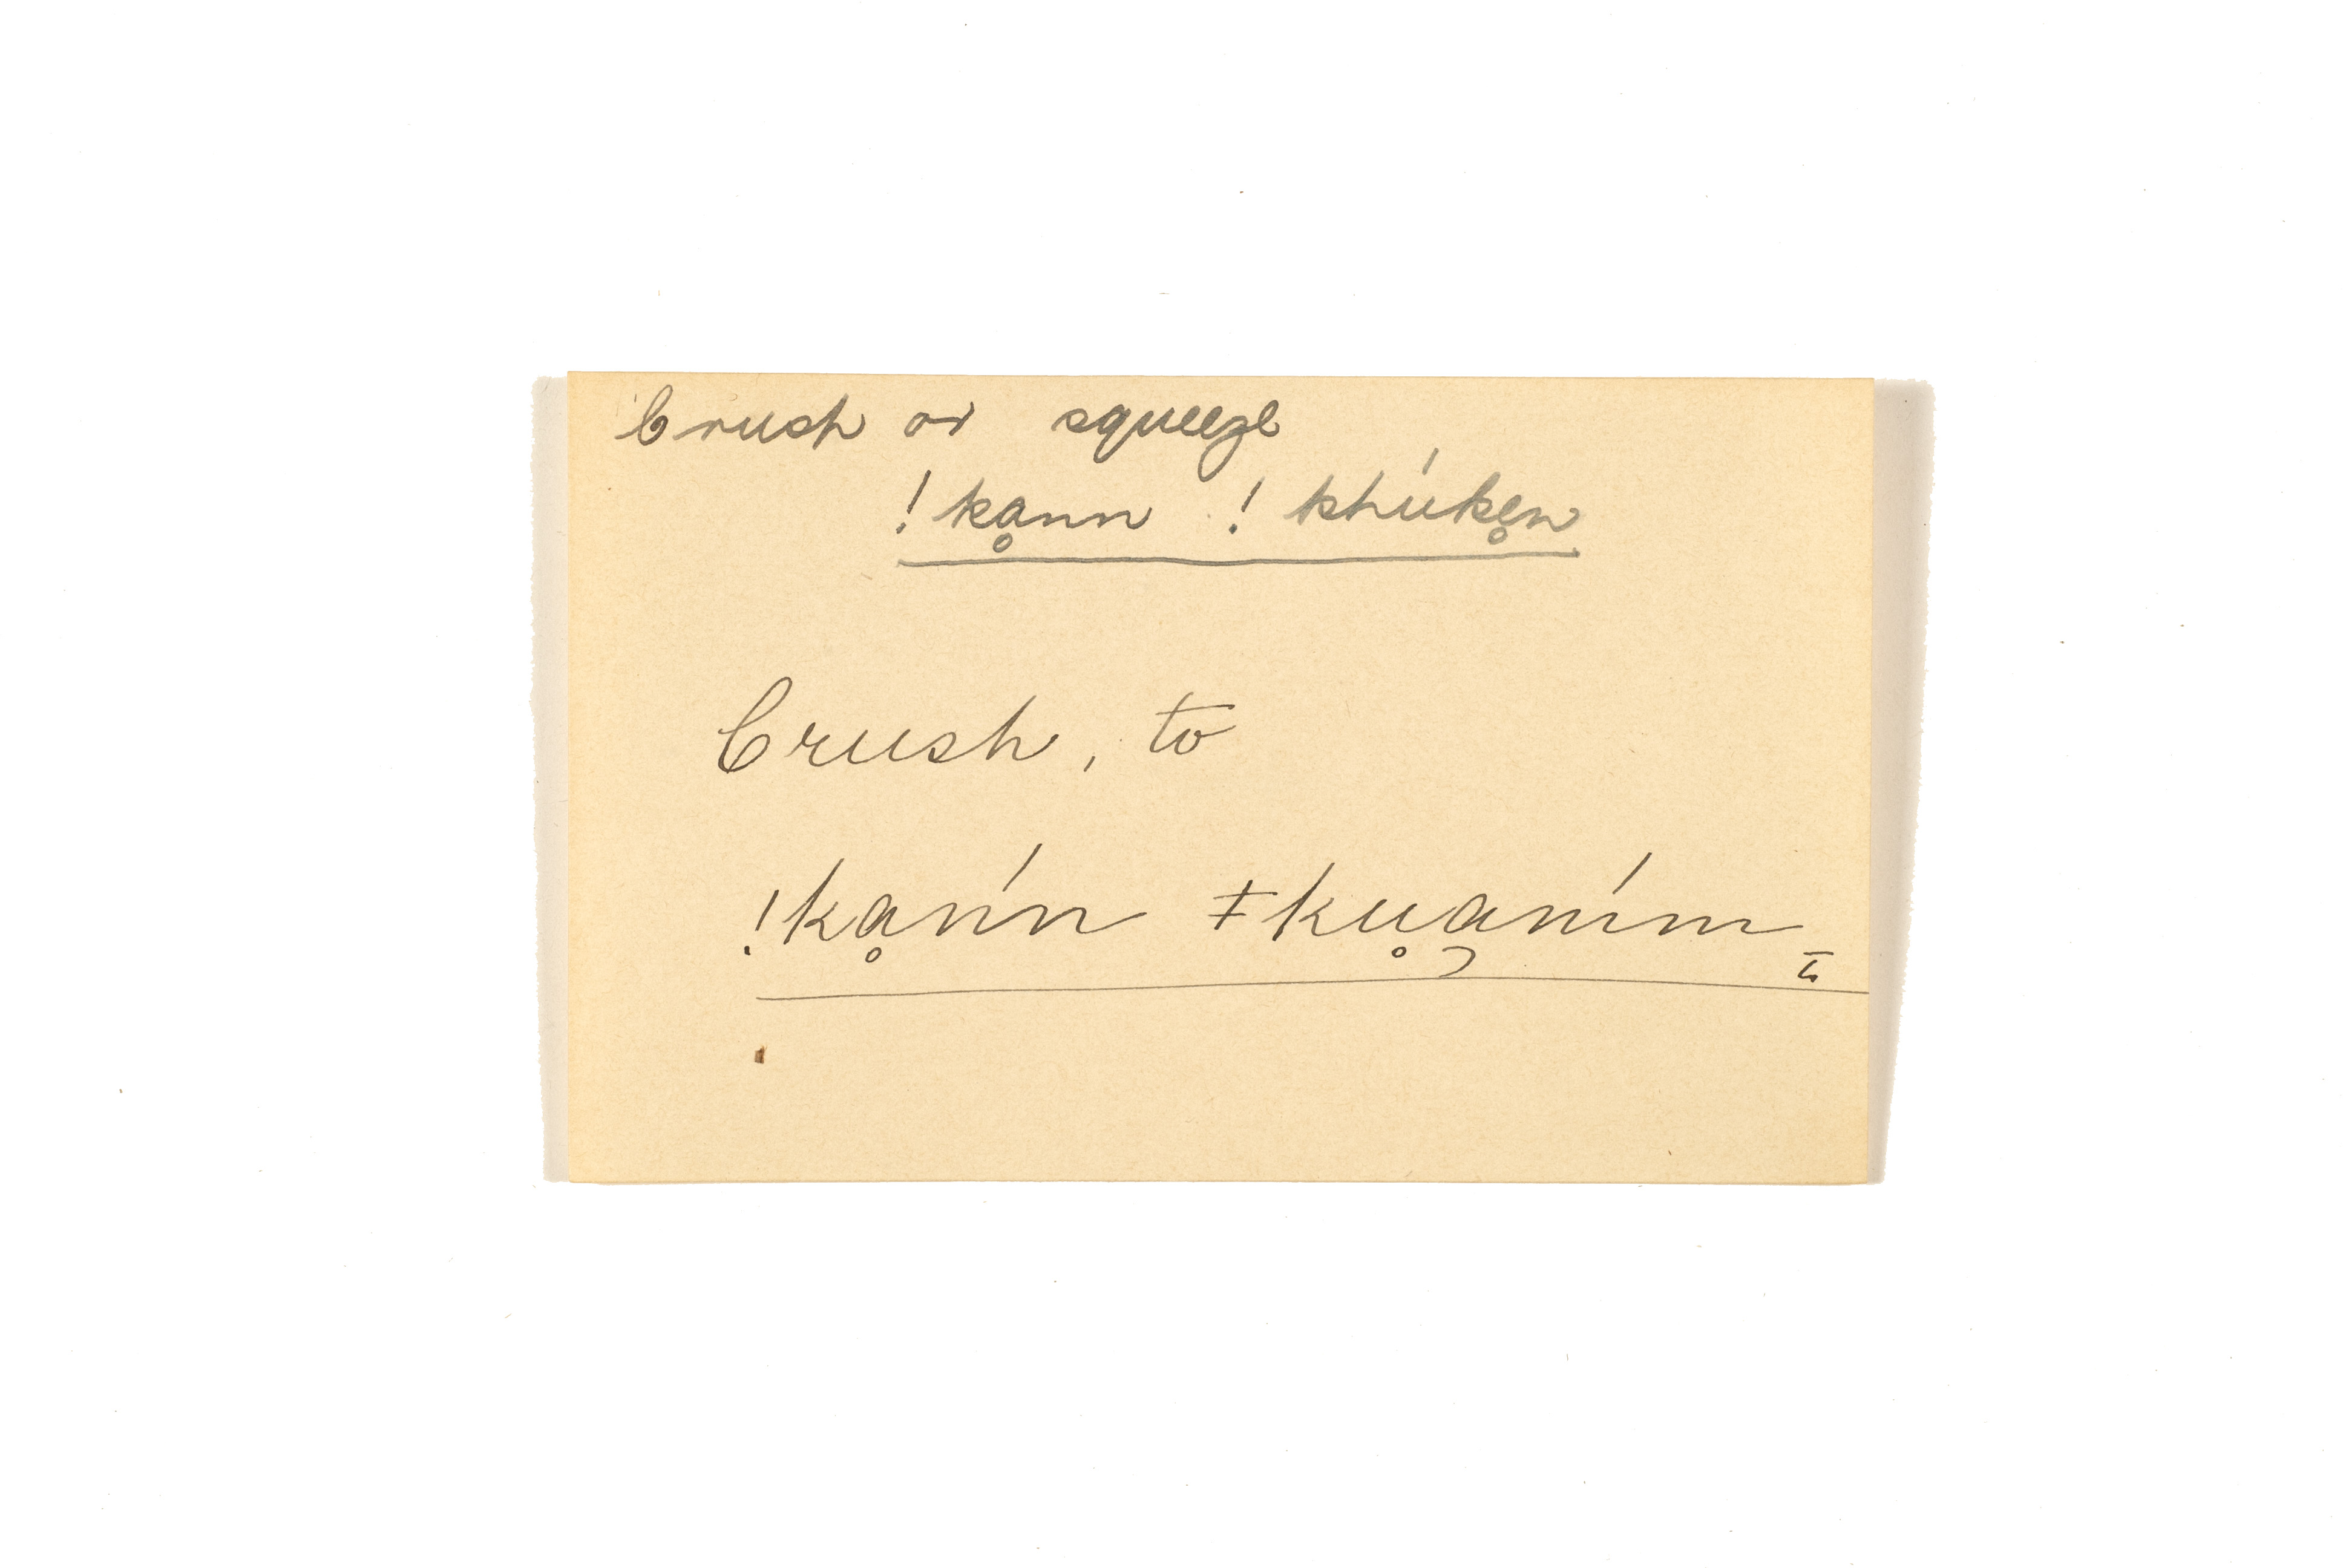 Crush or squeeze
!kḁnn !khúke̥n
Crush, to
!kḁńn ǂku̥a̡ḿm